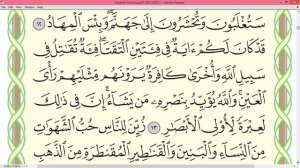 سَتُغْلَبُونَ وَتُحْشَرُونَ إِلَىٰ جَهَنَّمَ وَبِئْسَ ٱلْمِهَادُ ١٢
قَدْ كَانَ لَكُمْ ءَايَةٌ فِى فِئَتَيْنِ ٱلْتَقَتَا فِئَةٌ تُقَٰتِلُ فِى
سَبِيلِ ٱللَّهِ وَأُخْرَىٰ كَافِرَةٌ يَرَوْنَهُم مِّثْلَيْهِمْ رَأْىَ
ٱلْعَيْنِ وَٱللَّهُ يُؤَيِّدُ بِنَصْرِهِۦ مَن يَشَآءُ إِنَّ فِى ذَٰلِكَ
لَعِبْرَةً لِّأُو۟لِى ٱلْأَبْصَٰرِ ١٣ زُيِّنَ لِلنَّاسِ حُبُّ ٱلشَّهَوَٰتِ
مِنَ ٱلنِّسَآءِ وَٱلْبَنِينَ وَٱلْقَنَٰطِيرِ ٱلْمُقَنطَرَةِ مِنَ ٱلذَّهَبِ